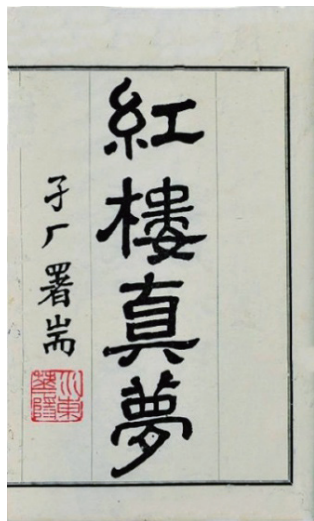 紅樓真夢
孑厂署耑